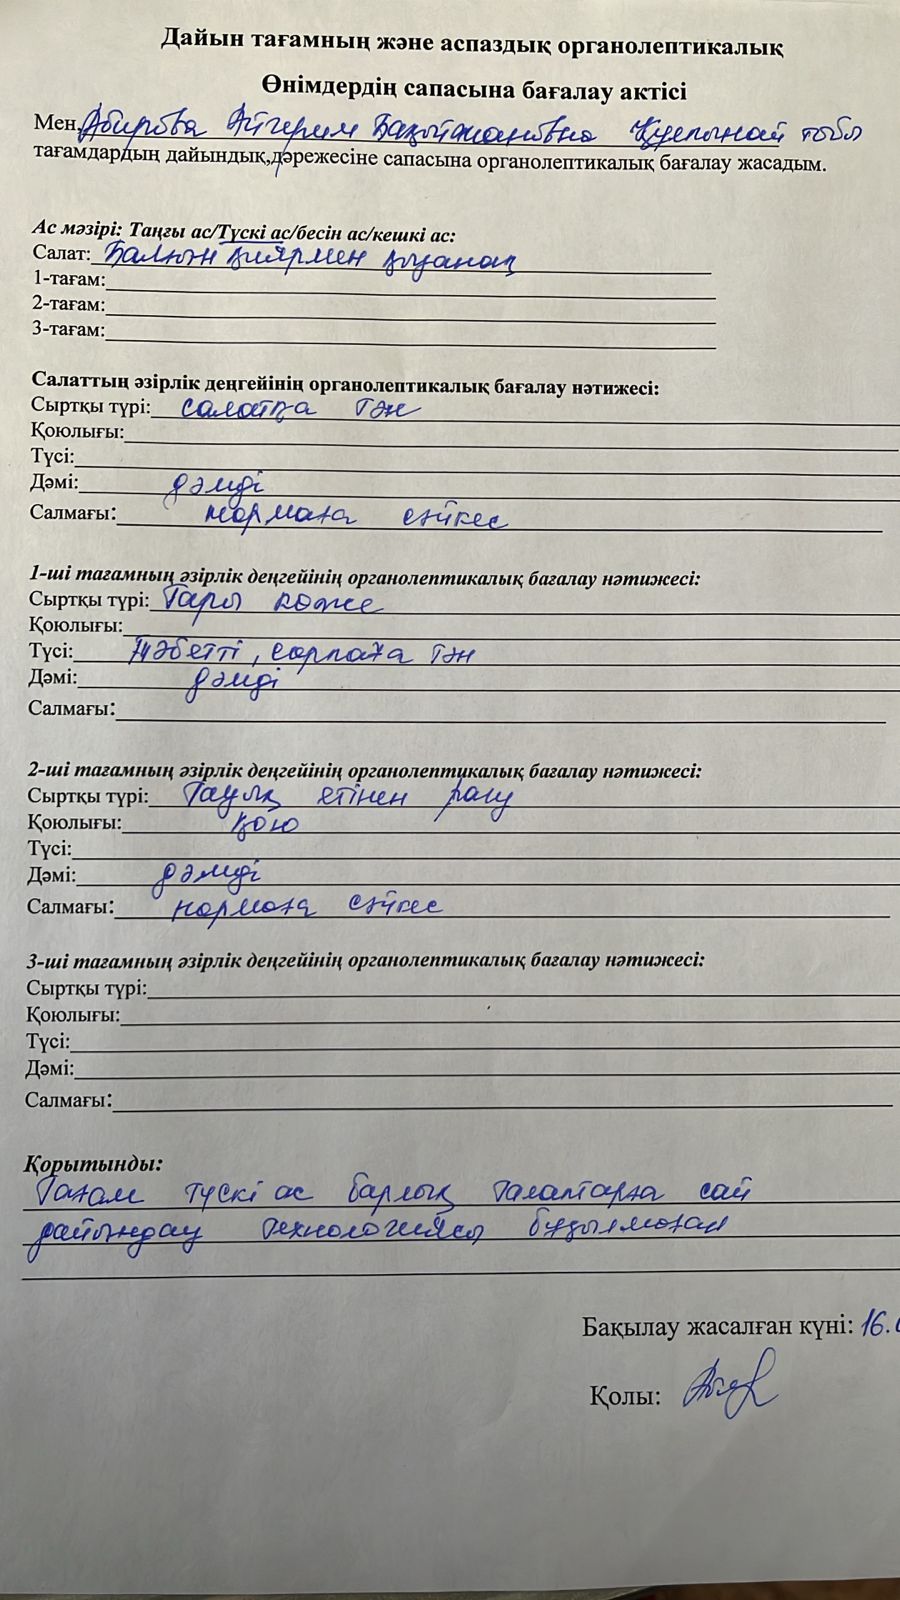 Дайын тағамның және аспаздық органолептикалық
Өнімдердің сапасына бағалау актісі
Мен, Абирова Айгерим Бақытжановна Құлпынай тобы
тағамдардың дайындық,дәрежесіне сапасына органолептикалық бағалау жасадым.
Ас мәзірі: Таңғы ас/Түскі ас/бесін ас/кешкі ас:
Салат: Балғын қиярмен қызанақ
1-тағам:
2-тағам:
3-тағам:
Салаттың әзірлік деңгейінің органолептикалық бағалау нәтижесі:
Сыртқы түрі: салатқа тән
Қоюлығы:
Түсі:
Дәмі: дәмді
Салмағы: нормаға сәйкес
1-ші тағамның әзірлік деңгейінің органолептикалық бағалау нәтижесі:
Сыртқы түрі: Тары көже
Қоюлығы:
Түсі: Тәбетті, сорпаға тән
Дәмі: дәмді
Салмағы:
2-ші тағамның әзірлік деңгейінің органолептикалық бағалау нәтижесі:
Сыртқы түрі: Тауық етінен рагу
Қоюлығы: қою
Түсі:
Дәмі: дәмді
Салмағы: нормаға сәйкес
3-ші тағамның әзірлік деңгейінің органолептикалық бағалау нәтижесі:
Сыртқы түрі:
Қоюлығы:
Түсі:
Дәмі:
Салмағы:
Қорытынды:
Тағам түскі ас барлық талаптарға сай
дайындау технологиясы бұзылмаған
Бақылау жасалған күні: 16.
Қолы: